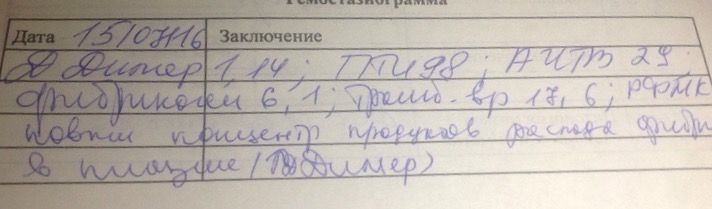 Гемостазиограмма
Дата 15/07/16 Заключение
Д Димер 1,14; ПТИ 98; АЧТВ 29;
фибриноген 6,1; тромб. вр 17,6; РФМК
повыш концентр продуктов распада фибри
в плазме (Д Димер)